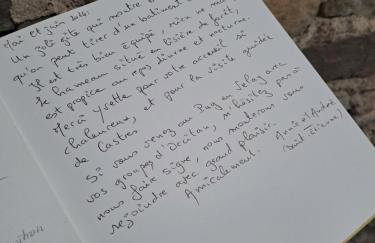 Mai et juin 2021
Un joli gîte qui montre
qu'on peut tirer d'un bâtiment
Il est très bien équipé, rien ne
le hameau situé en lisière de forêt,
est propice au repos diurne et nocturne.
Merci Yvette pour votre accueil si
chaleureux, et pour la visite guidée
de Castres
Si vous venez au Puy en Velay avec
vos groupes d'occitan, n'hésitez pas à
nous faire signe, nous monterons vous
rejoindre avec grand plaisir.
Amicalement. Anaïs et André
(Saint Étienne)